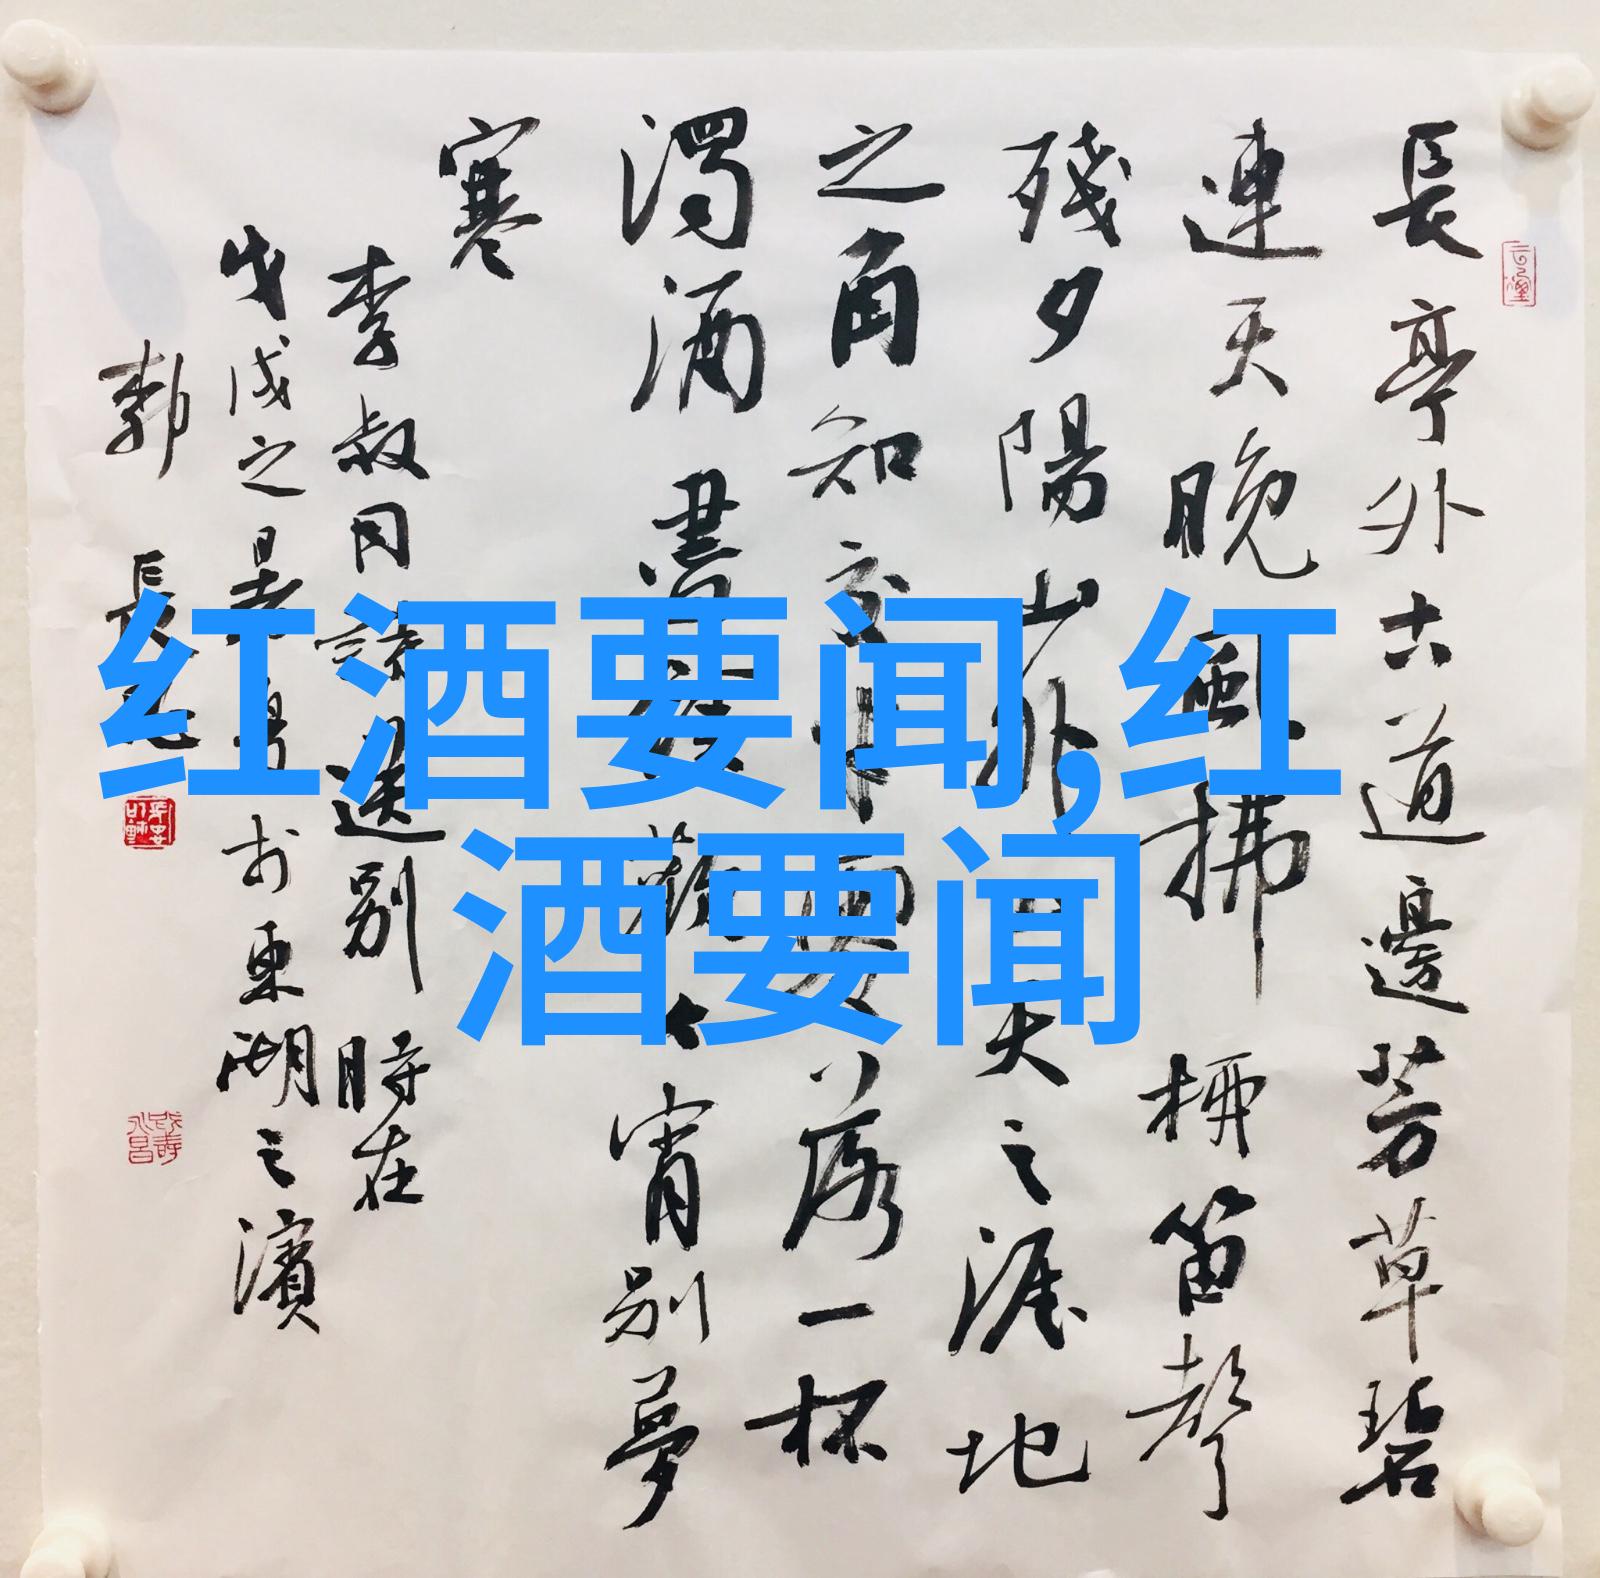 红酒要闻,红
酒要闻
長亭外古道邊芳草碧
連天晚風拂柳笛聲
殘夕陽山外山天之涯地
之角知交半零落一杯
濁酒盡餘歡今宵別夢
寒
李叔同詩送別 時在
戊戌之暑月於東湖之濱